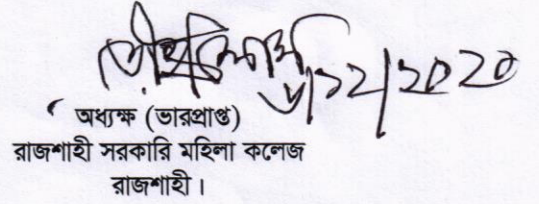 ৮/১২/২০২০
অধ্যক্ষ (ভারপ্রাপ্ত)
রাজশাহী সরকারি মহিলা কলেজ
রাজশাহী।